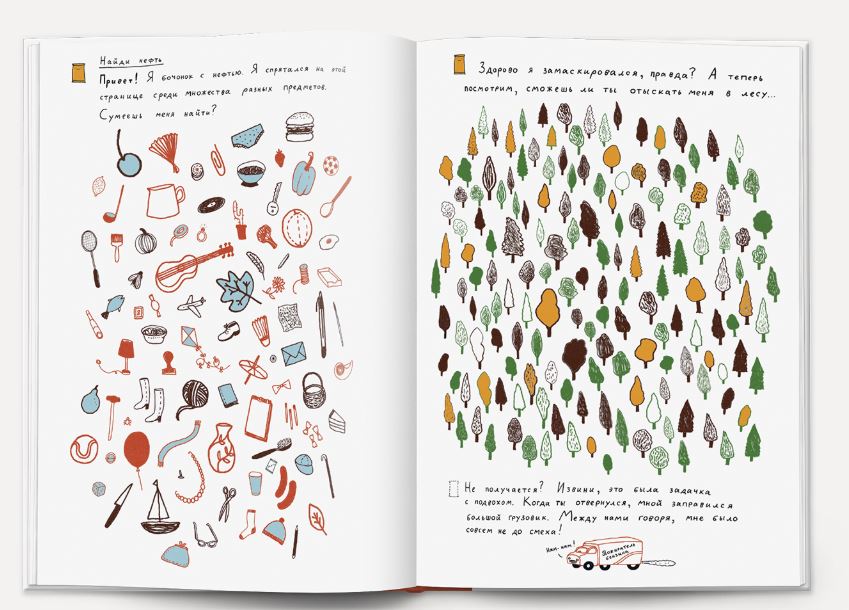 Найди нефть
Привет! Я бочонок с нефтью. Я спрятался на этой
странице среди множества разных предметов.
Сумеешь меня найти?
Здорово я замаскировался, правда? А теперь
посмотрим, сможешь ли ты отыскать меня в лесу...
Не получается? Извини, это была задачка
с подвохом. Когда ты отвернулся, мной заправился
большой грузовик. Между нами говоря, мне было
совсем не до смеха!
Ням-ням!
Пожиратель
бензина